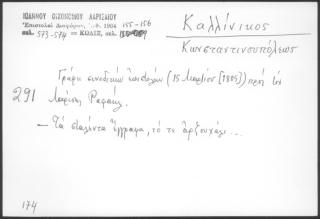 ΙΩΑΝΝΟΥ ΟΙΚΟΝΟΜΟΥ ΛΑΡΙΣΑΙΟΥ
Ἐπιστολαὶ Διαφόρων, 1964 155-156
σελ. 573-574 = ΚΩΔΙΞ, σελ.
Καλλίνικος
Κωνσταντινουπόλεως
Γράφει συνοδικὴν ἐπιστολὴν (15 Μαρτίου [1805]) πρὸς τὸν
291 Λαρίσης Ραφαήλ.
- Τὰ σταλέντα ἔγγραφα, τό τε ἀρζουχάλι...
174